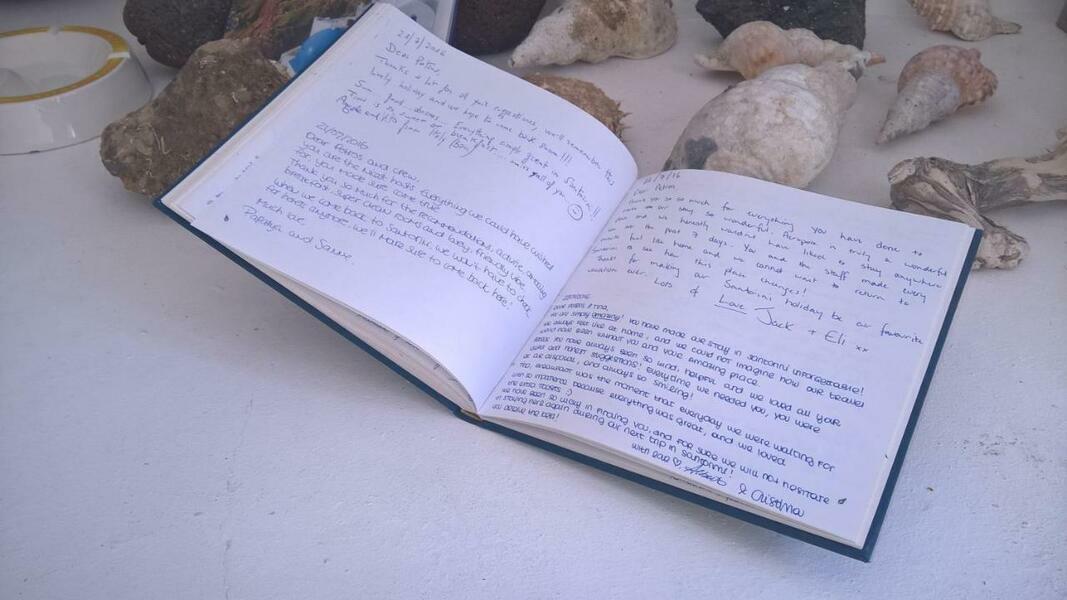 21/7/2016
Dear Petros,
Thanks a lot for all your suggestions, we'll remember this
lovely holiday and we hope to come back soon!!!
good Everything simply great in Santorini!!
Time is no longer our breakfast... miss all of you
from Italy
21/07/2016
Dear Petros and crew,
you are the nicest hosts. Everything we could have wished
for, you made sure came true.
Thank you so much for the recommendations, advise, amazing
breakfast, super clean rooms and lovely, friendly vibe.
When we come back to Santorini, we won't have to check
for hotels anymore. We'll make sure to come back here!
Much love,
and
/7/16
Dear Petros,
Thank you so so much for everything you have done to
make our stay so wonderful. is truly a wonderful
place and we honestly wouldn't have liked to stay anywhere
else the past 7 days. You and the staff made every
feel like home and we cannot want to return to
Santorini to see how this place changes!
Thanks for making our Santorini holiday be our favourite
vacation ever.
Lots of Love Jack + Eli xx
Dear Petros & Tina,
you are simply amazing! You have made our stay in Santorini unforgettable!
We always feel like at home, and we could not imagine how our travel
would have been without you and your amazing place.
Petros you have always been so kind, helpful and we loved all your
useful and honest suggestions! Everytime we needed you, you were
at our disposal, and always so smiling!
Tina, breakfast was the moment that everyday we were waiting for
with so impatience because everything was great, and we loved
the extra toasts :)
We have been so lucky in finding you, and for sure we will not hesitate
in staying here again during our next trip in Santorini!
You deserve the best!
with love
& Cristina